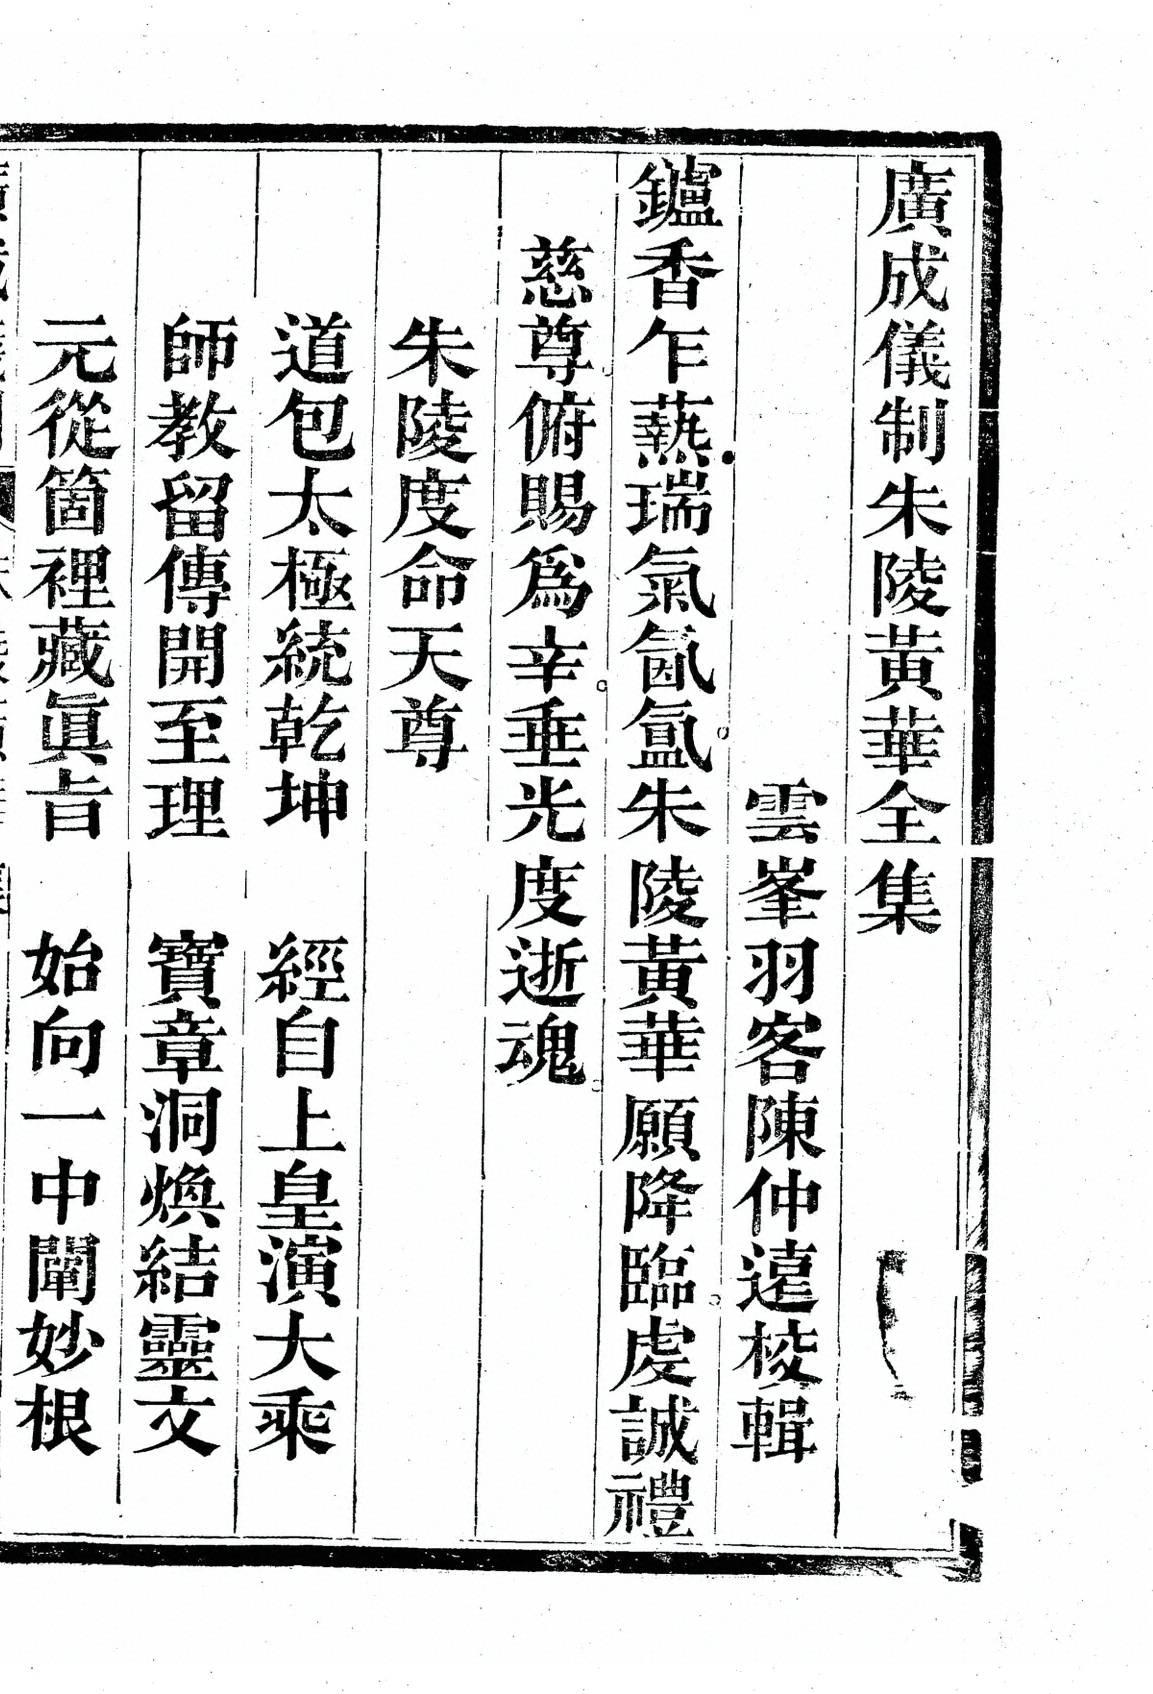 廣成儀制朱陵黃華全集
雲峯羽客陳仲遠校輯
鑪香乍爇瑞氣氤氳朱陵黃華願降臨虔誠禮
慈尊俯賜爲幸垂光度逝魂
朱陵度命天尊
道包太極統乾坤　經自上皇演大乘
師教留傳開至理　寶章洞煥結靈文
元從箇裡藏眞旨　始向一中闡妙根